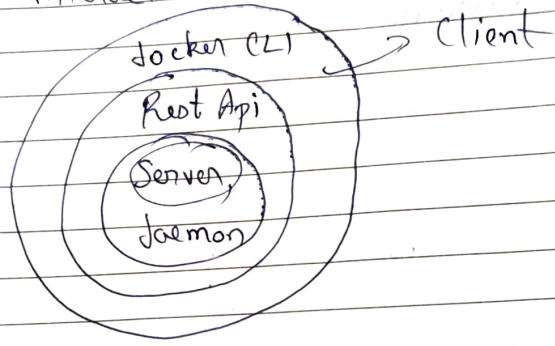 docker CLI
Client
Rest Api
Server
daemon